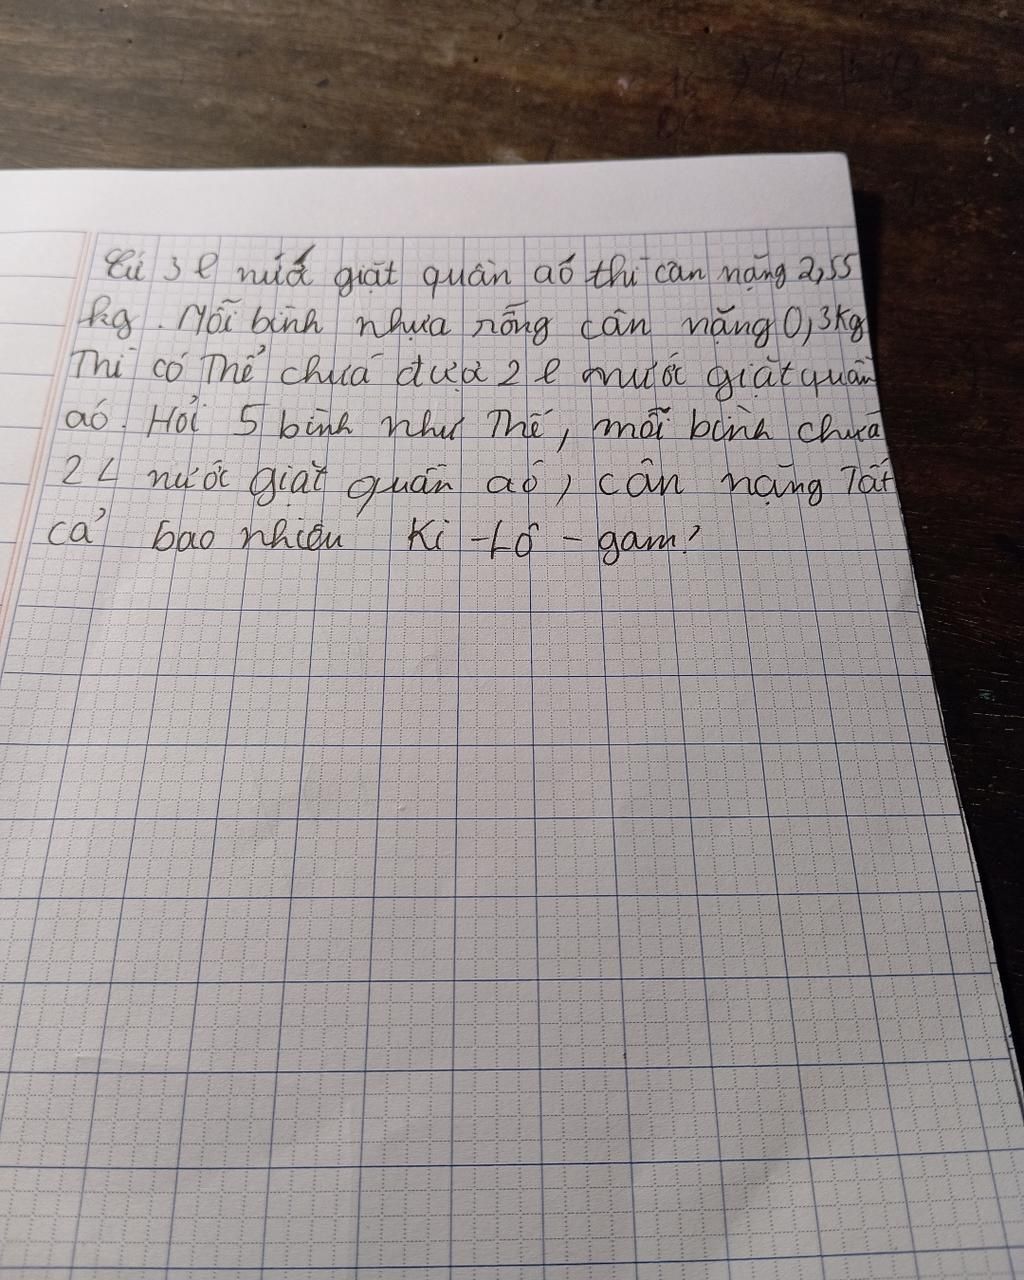 Cứ 3 l nước giặt quần aó thì cân nặng 2,55
kg. Mỗi bình nhựa rỗng cân nặng 0,3kg
Thì có Thể chứa được 2 l nước giặt quần
aó. Hỏi 5 bình như Thế, mỗi bình chứa
2 L nước giặt quần aó, cân nặng Tất
cả bao nhiêu Ki - Lô - gam?